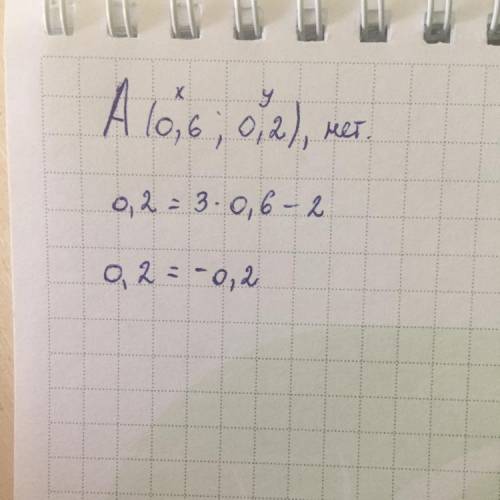 x y
A (0,6 ; 0,2), нет.
0,2 = 3 · 0,6 – 2
0,2 = -0,2